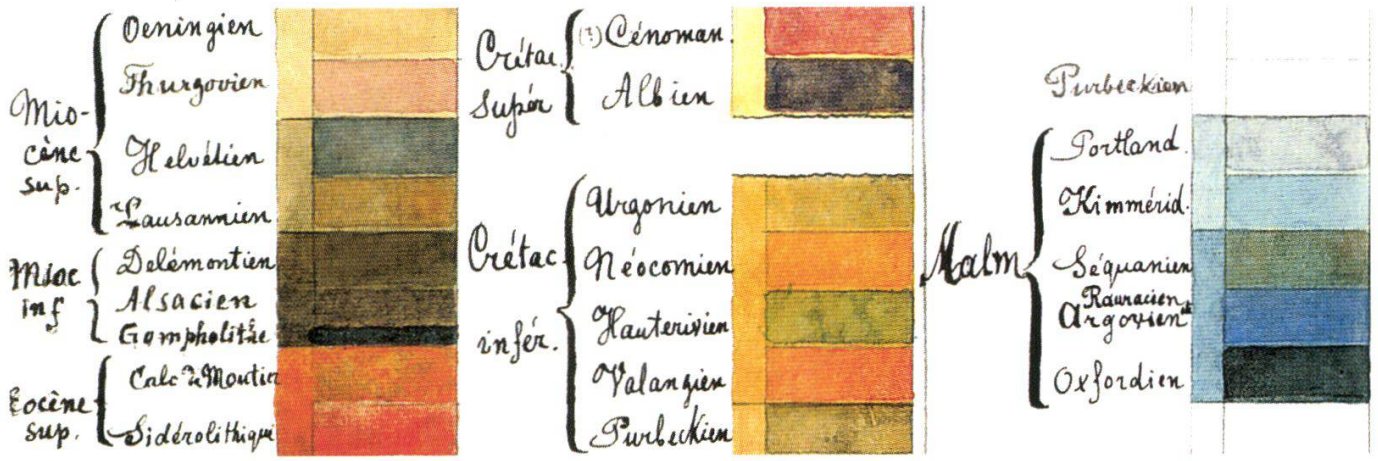 Miocène sup.
Oeningien
Thurgovien
Helvétien
Lausannien
Mioc inf
Delémontien
Alsacien
Gompholithe
Eocène sup.
Calc de Moutier
Sidérolithique
Crétac. supér
(?) Cénoman.
Albien
Crétac. infér.
Urgonien
Néocomien
Hauterivien
Valangien
Purbeckien
Purbeckien
Malm
Portland.
Kimmérid.
Séquanien
Rauracien et
Argovien
Oxfordien